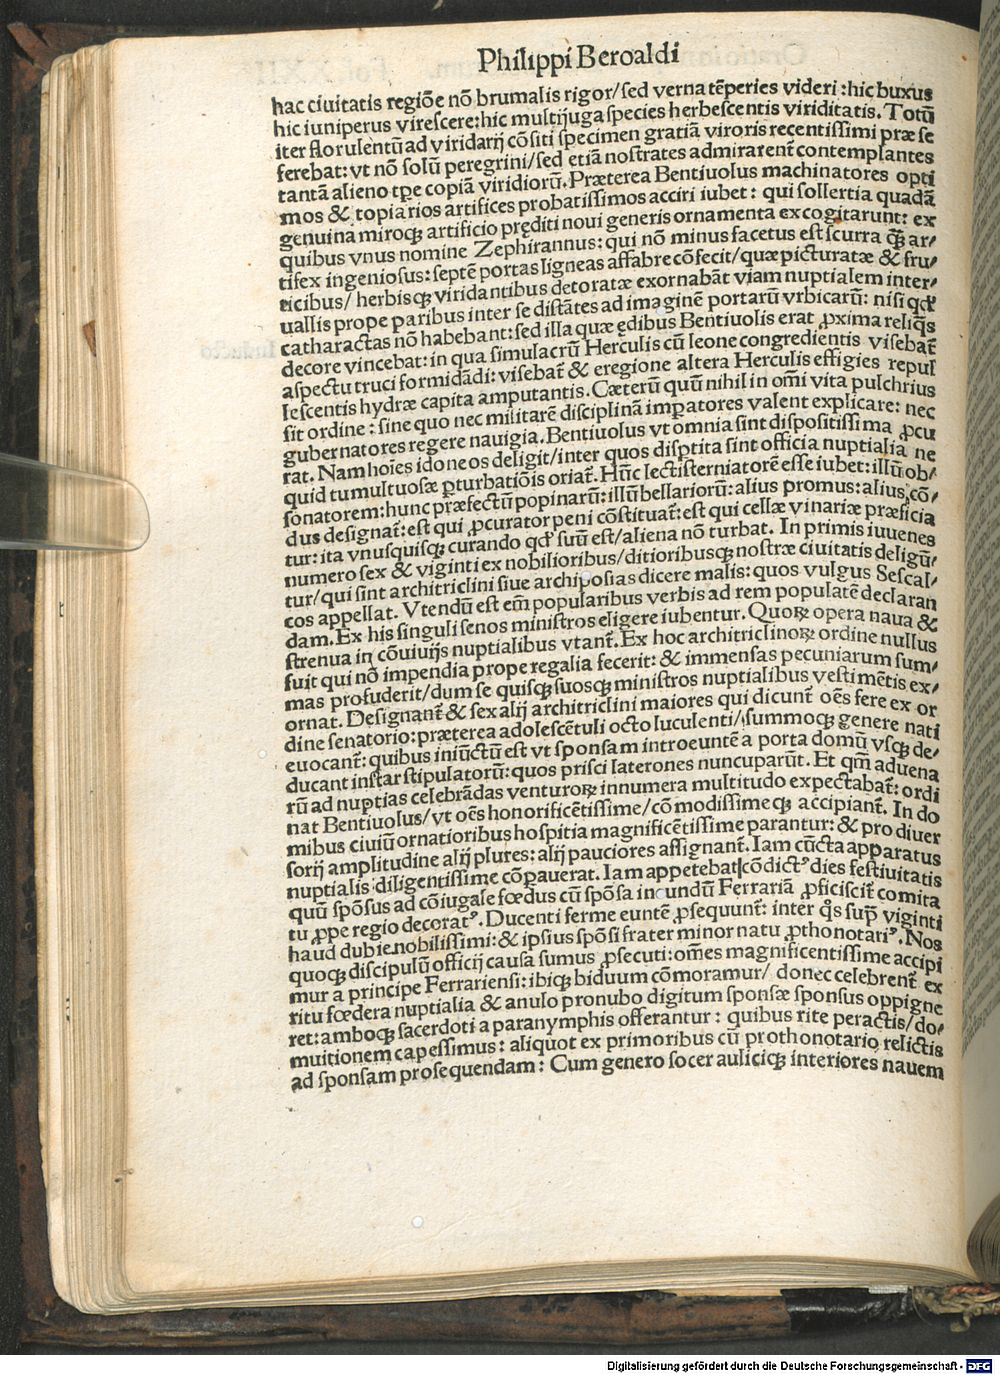 Philippi Beroaldi
hac ciuitatis regiõe nõ brumalis rigor/sed verna tẽperies videri:hic buxus
hic iuniperus virescere:hic multijuga species herbescentis viriditatis. Totũ
iter florulentũ ad viridarij cõsiti specimen gratiã viroris recentissimi præ se
ferebat: vt nõ solũ peregrini/sed etiã nostrates admirarent̃ contemplantes
tantã alieno tp̃e copiã viridiorũ. Præterea Bentiuolus machinatores opti
mos & topiarios artifices probatissimos acciri iubet: qui sollertia quadã
genuina miroqꝫ artificio pręditi noui generis ornamenta excogitarunt: ex
quibus vnus nomine Zephirannus: qui nõ minus facetus est scurra q̃ȝ ar/
tifex ingeniosus: septẽ portas ligneas affabre cõfecit/quæ picturatæ & fru/
ticibus/ herbisqꝫ viridantibus decoratæ exornabãt viam nuptialem inter/
uallis prope paribus inter se distãtes ad imaginẽ portarũ vrbicarũ: nisi qď
catharactas nõ habebant: sed illa quæ ędibus Bentiuolis erat ꝓxima reliq̃s
decore vincebat: in qua simulacrũ Herculis cũ leone congredientis visebat̃
aspectu truci formidãdi: visebat̃ & eregione altera Herculis effigies repul
lescentis hydræ capita amputantis. Cæterũ quũ nihil in om̃i vita pulchrius
sit ordine: sine quo nec militarẽ disciplinã imꝑatores valent explicare: nec
gubernatores regere nauigia. Bentiuolus vt omnia sint dispositissima ꝓcu
rat. Nam hoĩes idoneos deligit/inter quos disꝑtita sint officia nuptialia ne
quid tumultuosæ ꝑturbatiõis oriat̃. Hũc lectisterniatorẽ esse iubet: illũ ob/
sonatorem: hunc præfectũ popinarũ: illũ bellariorũ: alius promus: alius cõ/
dus designat̃: est qui ꝓcurator peni cõstituat̃: est qui cellæ vinariæ præficia
tur: ita vnusquisqꝫ curando qď suũ est/aliena nõ turbat. In primis iuuenes
numero sex & viginti ex nobilioribus/ditioribusqꝫ nostræ ciuitatis deligũ/
tur/qui sint architriclini siue archiposias dicere malis: quos vulgus Sescal/
cos appellat. Vtendũ est em̃ popularibus verbis ad rem populatẽ declaran
dam. Ex his singuli senos ministros eligere iubentur. Quoꝝ opera naua &
strenua in cõuiuijs nuptialibus vtant̃. Ex hoc architriclinoꝝ ordine nullus
fuit qui nõ impendia prope regalia fecerit: & immensas pecuniarum sum/
mas profuderit/dum se quisqꝫ suosqꝫ ministros nuptialibus vestimẽtis ex/
ornat. Designant̃ & sex alij architriclini maiores qui dicunt̃ oẽs fere ex or
dine senatorio: præterea adolescẽtuli octo luculenti/summoqꝫ genere nati
euocant̃: quibus iniũctũ est vt sponsam introeuntẽ a porta domũ vsqꝫ de/
ducant instar stipulatorũ: quos prisci laterones nuncuparũt. Et qm̃ aduena
rũ ad nuptias celebrãdas venturoꝝ innumera multitudo expectabat̃: ordi
nat Bentiuolus/vt oẽs honorificẽtissime/cõmodissimeqꝫ accipiant̃. In do
mibus ciuiũ ornatioribus hospitia magnificẽtissime parantur: & pro diuer
sorij amplitudine alij plures: alij pauciores assignant̃. Iam cũcta apparatus
nuptialis diligentissime cõpauerat. Iam appetebat cõdictꝰ dies festiuitatis
quũ spõsus ad cõiugale fœdus cũ spõsa incundũ Ferrariã ꝓficiscit̃ comita
tu ꝓpe regio decoratꝰ. Ducenti ferme euntẽ ꝓsequunt̃: inter q̃s sup̃ viginti
haud dubie nobilissimi: & ipsius spõsi frater minor natu ꝓthonotariꝰ. Nos
quoqꝫ discipulũ officij causa sumus ꝓsecuti: om̃es magnificentissime accipi
mur a principe Ferrariensi: ibiqꝫ biduum cõmoramur/ donec celebrent̃ ex
ritu fœdera nuptialia & anulo pronubo digitum sponsæ sponsus oppigne
ret: amboqꝫ sacerdoti a paranymphis offerantur: quibus rite peractis/do/
muitionem capessimus: aliquot ex primoribus cũ prothonotario relictis
ad sponsam prosequendam: Cum genero socer auliciqꝫ interiores nauem
Digitalisierung gefördert durch die Deutsche Forschungsgemeinschaft - DFG